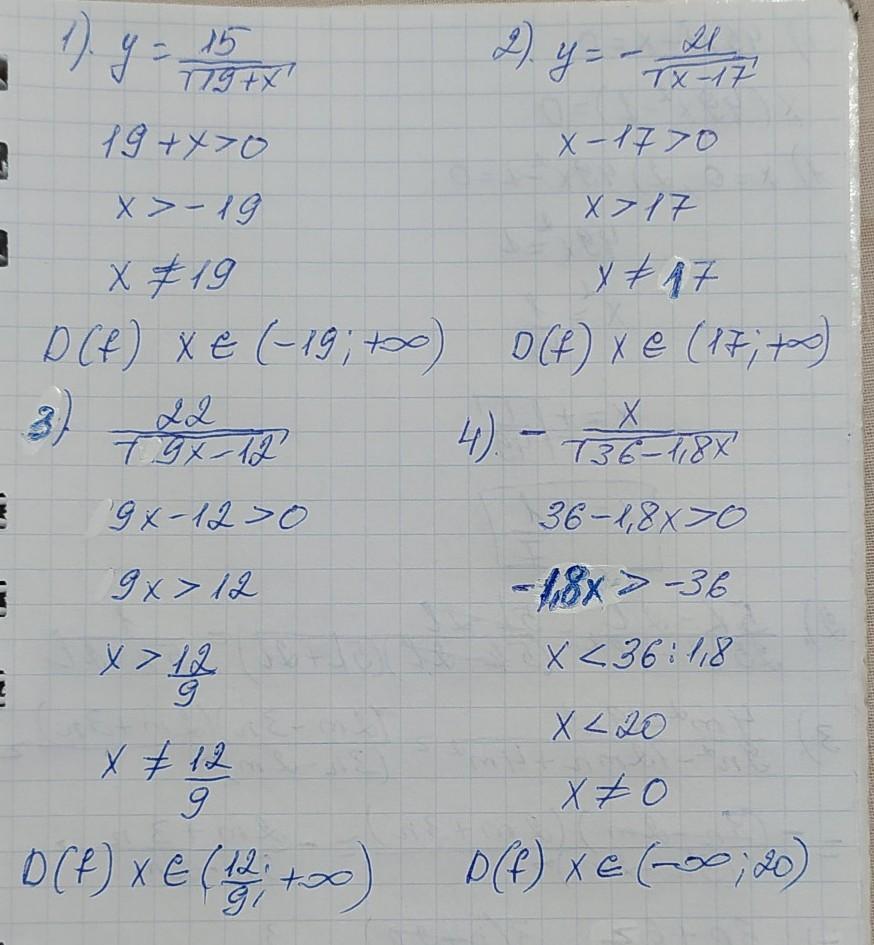 1). y = 15/√19+x
19+x>0
x>-19
x ≠ 19
D(f) x ∈ (-19; +∞)
2). y = - 21/√x-17
x-17>0
x>17
x ≠ 17
D(f) x ∈ (17; +∞)
3) 22/√9x-12
9x-12>0
9x>12
x > 12/9
x ≠ 12/9
D(f) x ∈ (12/9; +∞)
4). - x/√36-1,8x
36-1,8x>0
-1,8x > -36
x < 36:1,8
x < 20
x ≠ 0
D(f) x ∈ (-∞; 20)